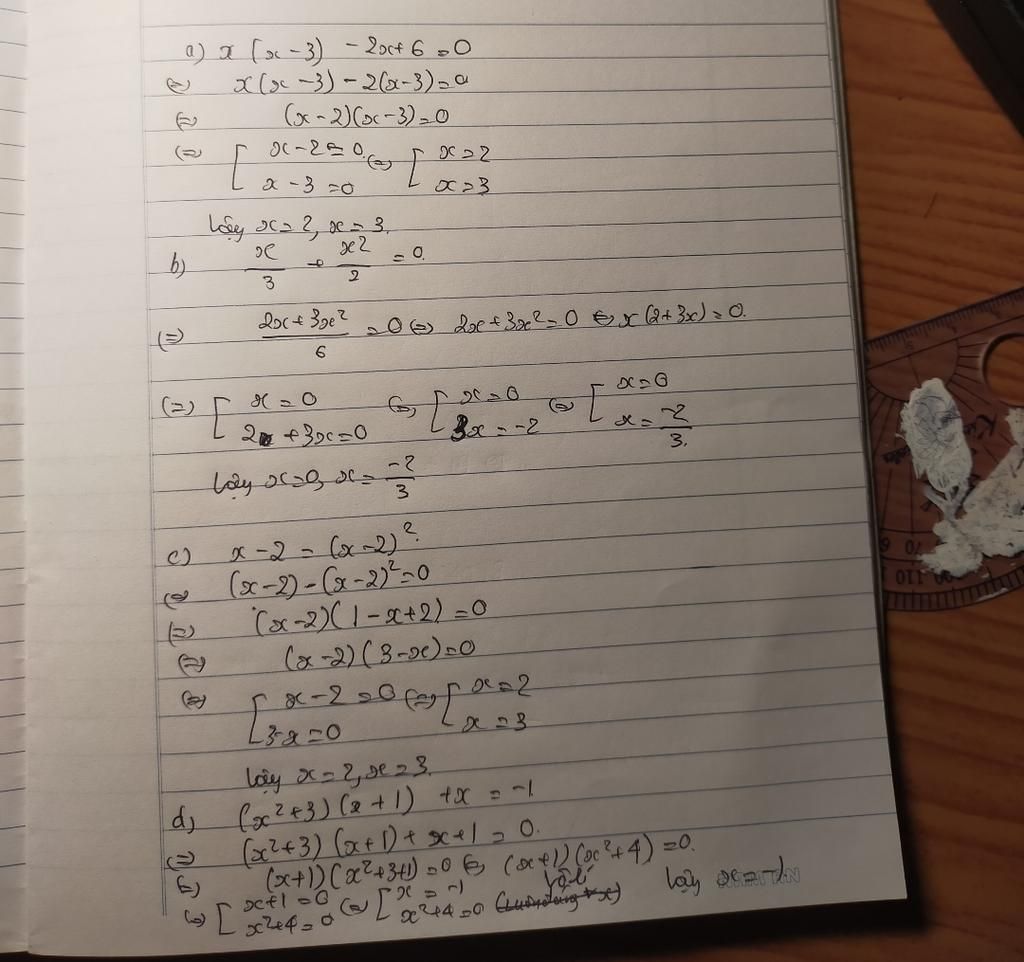 a) x (x - 3) - 2x + 6 = 0
⇔ x(x - 3) - 2(x - 3) = 0
⇔ (x - 2)(x - 3) = 0
⇔ [ x - 2 = 0 ⇔ [ x = 2
x - 3 = 0 x = 3
Vậy x = 2, x = 3.
b) x/3 + x²/2 = 0.
⇔ (2x + 3x²)/6 = 0 ⇔ 2x + 3x² = 0 ⇔ x(2 + 3x) = 0.
⇔ [ x = 0 ⇔ [ x = 0 ⇔ [ x = 0
2 + 3x = 0 3x = -2 x = -2/3.
Vậy x = 0, x = -2/3
c) x - 2 = (x - 2)².
⇔ (x - 2) - (x - 2)² = 0
⇔ (x - 2)(1 - x + 2) = 0
⇔ (x - 2)(3 - x) = 0
⇔ [ x - 2 = 0 ⇔ [ x = 2
3 - x = 0 x = 3
Vậy x = 2, x = 3.
d) (x² + 3)(x + 1) + x = -1
⇔ (x² + 3)(x + 1) + x + 1 = 0.
⇔ (x + 1)(x² + 3 + 1) = 0 ⇔ (x + 1)(x² + 4) = 0.
⇔ [ x + 1 = 0 ⇔ [ x = -1 Vô lí Vậy x = -1
x² + 4 = 0 x² + 4 = 0